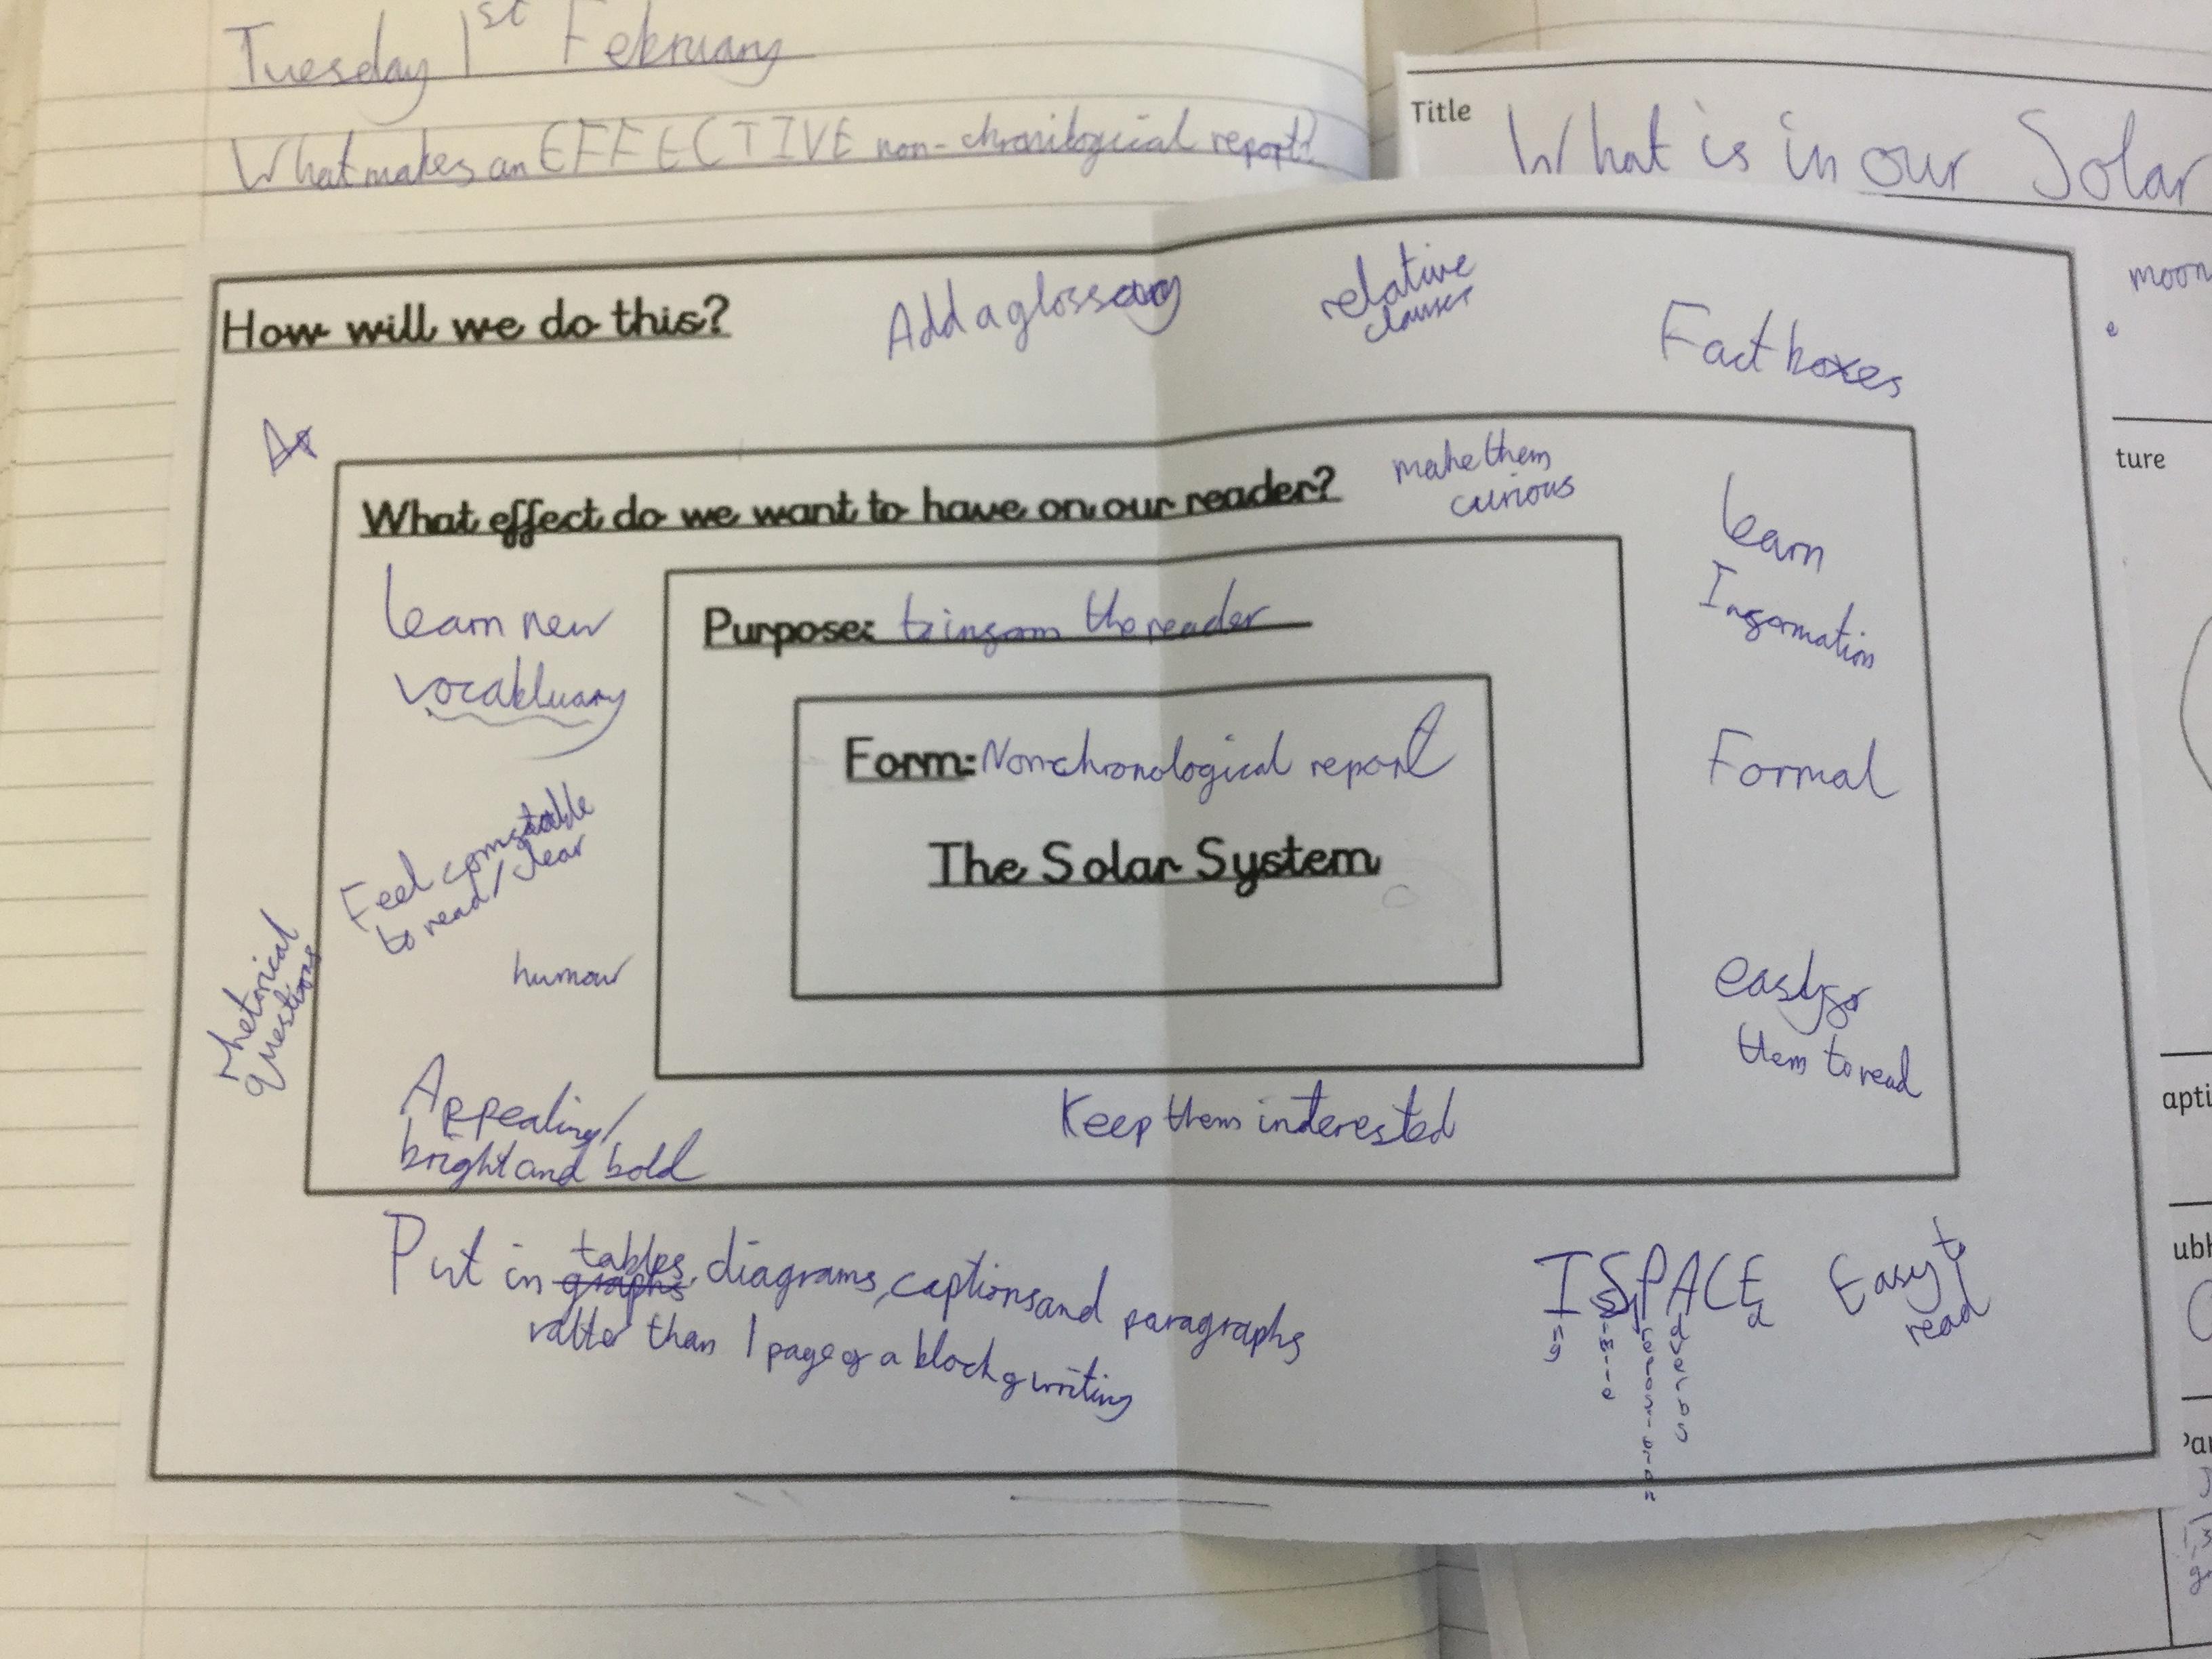 Tuesday 1st February
What makes an EFFECTIVE non-chronilogical report?
Title What is in our Solar
How will we do this?
Add a glossary
relative
clauses
Fact boxes
moon
e
ture
What effect do we want to have on our reader?
make them
curious
learn
Information
Formal
easy for
them to read
learn new
vocabluary
Feel comfotable
to read/clear
humour
Appealing/
bright and bold
Keep them interested
Purpose: to inform the reader
Form: Non-chronological report
The Solar System
rhetorical
questions
Put in graphs tables, diagrams, captions and paragraphs
rather than 1 page of a block of writing
ISPACE
ng
imile
reposition
dverbs
d
Easy to
read
apti
ubh